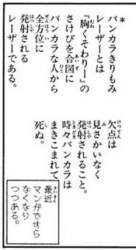 ＊
バンカラきりもみ
レーザーとは
「胸くそわりーーの
さけびを合図に
バンカラな人から
全方位に
発射される
レーザーである。
欠点は
見さかいなく
発射されることと
時々バンカラは
まきこまれて
死ぬ。
最近
マンガですら
なくなり
つつある。